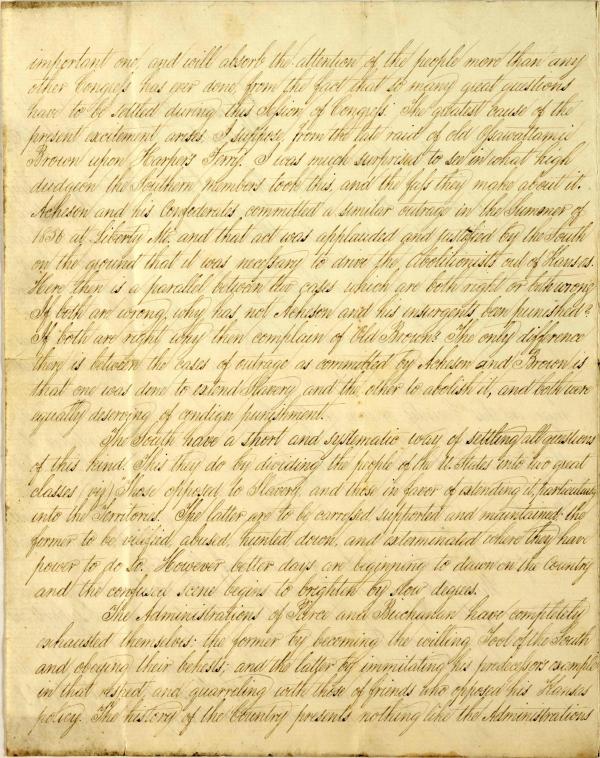 important one, and will absorb the attention of the people more than any
other Congress has ever done, from the fact that so many great questions
have to be settled during this Session of Congress. The greatest cause of the
present excitement arises, I suppose, from the late raid of old Osawattamie
Brown upon Harpers Ferry. I was much surprised to see in what high
dudgeon the Southern members took this, and the fuss they make about it.
Acheson and his Confederates, committed a similar outrage in the Summer of
1856 at Liberty Mo. and that act was applauded and justified by the South
on the ground that it was necessary to drive the Abolitionists out of Kansas.
Here then is a parallel between two cases which are both right or both wrong
If both are wrong, why has not Acheson and his insurgents been punished?
If both are right why then complain of Old Brown? The only difference
there is between the cases of outrage as committed by Acheson and Brown is
that one was done to extend Slavery, and the other to abolish it, and both were
equally deserving of condign punishment.
The South have a short and systematic way of settling all questions
of this kind. This they do by dividing the people of the U. States into two great
classes (viz) Those opposed to Slavery, and those in favor of extending it, particularly
into the Territories. The latter are to be caressed supported and maintained: the
former to be abused, hunted down, and exterminated where they have
power to do so. However better days are beginning to dawn on the Country
and the confused scene begins to brighten by slow degrees.
The Administrations of Pierce and Buchanan have completely
exhausted themselves: the former by becoming the willing Tool of the South
and obeying their behests; and the latter by immitating his predecessors example
in that respect, and quarreling with those of friends who opposed his Kansas
policy. The history of the Country presents nothing like the Administrations